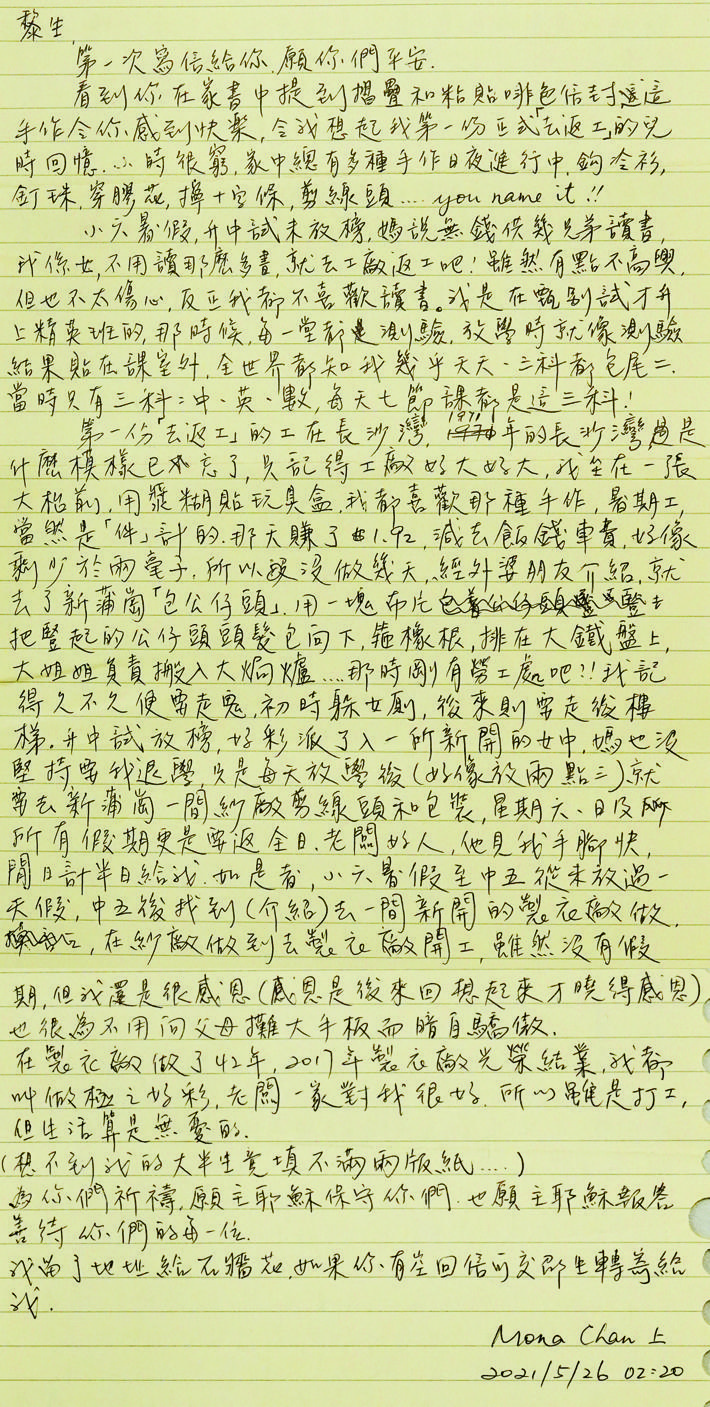 黎生,
第一次寫信給你,願你們平安.
看到你在家書中提到摺疊和粘貼啡色信封,這
手作令你感到快樂,令我想起我第一份正式「去返工」的兒
時回憶.小時很窮,家中總有多種手作日夜進行中,鈎冷衫,
釘珠,穿膠花,擰十字條,剪線頭.... you name it !!
小六暑假,升中試未放榜,媽說無錢供幾兄弟讀書,
我係女,不用讀那麼多書,就去工廠返工吧!雖然有點不高興,
但也不太傷心,反正我都不喜歡讀書。我是在甄別試才升
上精英班的,那時候,每一堂都是測驗,放學時就像測驗
結果貼在課室外,全世界都知我幾乎天天、三科都包尾二.
當時只有三科:中、英、數,每天七節課都是這三科!
第一份「去返工」的工在長沙灣,1971年的長沙灣是
什麼模樣已忘了,只記得工廠好大好大,我坐在一張
大枱前,用漿糊貼玩具盒,我都喜歡那種手作,暑期工,
當然是「件」計的.那天賺了$1.92,減去飯錢車費,好像
剩少於兩毫子.所以沒做幾天,經外婆朋友介紹,就
去了新蒲崗「包公仔頭」.用一塊布片
把豎起的公仔頭頭髮包向下,箍橡根,排在大鐵盤上,
大姐姐負責搬入大焗爐....那時剛有勞工處吧!!我記
得久不久便要走鬼,初時躲女廁,後來則要走後樓
梯.升中試放榜,好彩派了入一所新開的女中,媽也沒
堅持要我退學只是每天放學後(好像放兩點三)就
要去新蒲崗一間紗廠剪線頭和包裝,星期六、日及
所有假期更是要返全日.老闆好人,他見我手腳快,
閒日計半日給我.如是者,小六暑假至中五從未放過一
天假,中五後找到(介紹)去一間新開的製衣廠做,
在紗廠做到去製衣廠開工,雖然沒有假
期,但我還是很感恩(感恩是後來回想起來才曉得感恩)
也很為不用向父母攤大手板而暗自驕傲.
在製衣廠做了42年,2017年製衣廠光榮結業,我都
叫做極之好彩,老闆一家對我很好.所以雖是打工,
但生活算是無憂的.
(想不到我的大半生竟填不滿兩版紙....)
為你們祈禱,願主耶穌保守你們.也願主耶穌報答
善待你們的每一位.
我留了地址給石牆花,如果你有空回信可交邵生轉寄給
我.
Mona Chan 上
2021/5/26 02:20